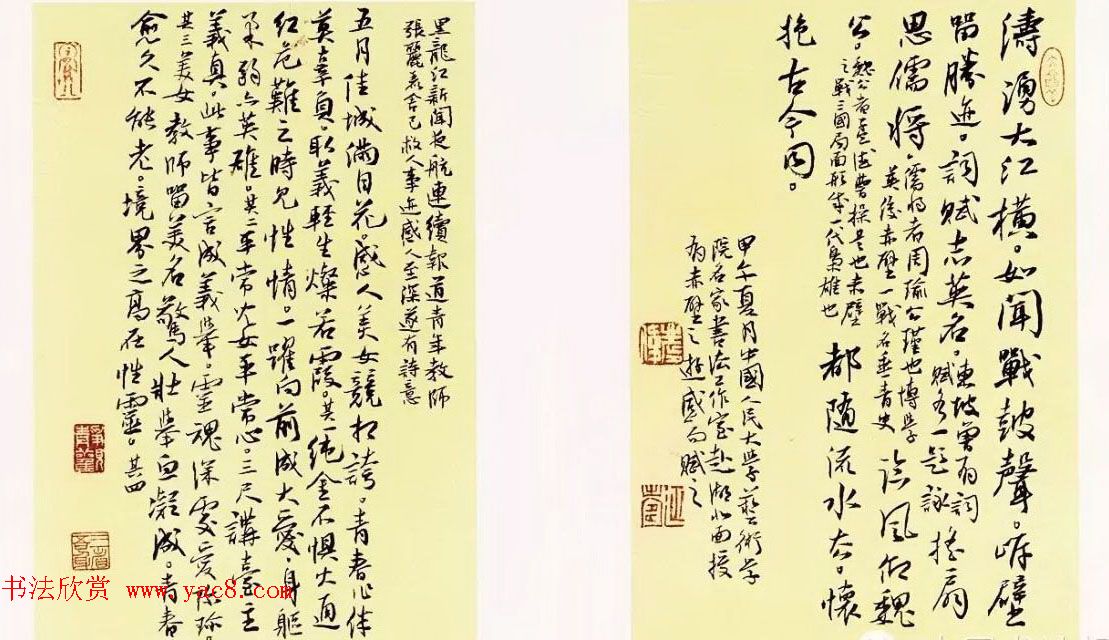 濤湧大江橫。如聞戰鼓聲。崖壁
留勝迹。詞賦志英名。東坡曾有詞賦各一題詠 搖扇
思儒將。儒將者周瑜公瑾也博學英俊赤壁一戰名垂青史 臨風仰魏
公。魏公者孟德曹操是也赤壁之戰三國局面形成一代梟雄也 都隨流水去。懷
抱古今同。
甲午夏月中國人民大學藝術學
院名家書法工作室赴湖北面授
有赤壁之遊感而賦之
黑龍江新聞夜航連續報道青年教師
張麗莉舍己救人事迹感人至深遂有詩意
五月佳城滿目花。感人美女競相誇。青春
莫辜負。取義輕生燦若霞。其一 純金不懼火通
紅。危難之時見性情。一躍向前成大愛。身軀
柔弱亦英雄。其二 平常少女平常心。三尺講臺主
義真。此事皆言成義舉。靈魂深處愛
其三 美女教師留美名。驚人壯舉血凝成。青春
愈久不能老。境界之高在性靈。其四
书法欣赏 www.yac8.com